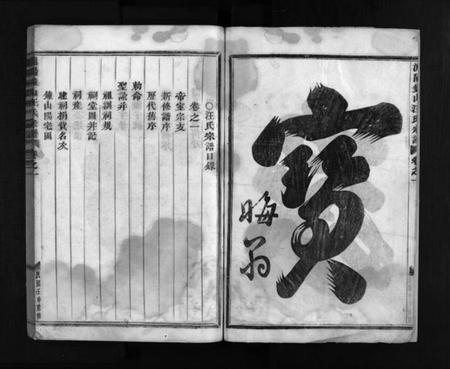 寶
晦翁
汪氏宗譜目錄
卷之一
帝室宗支
新修譜序
歷代舊序
勅命
聖諭并
祖訓祠規
祠堂圖并記
祠產
建祠捐貲名次
鍾山陽宅圖